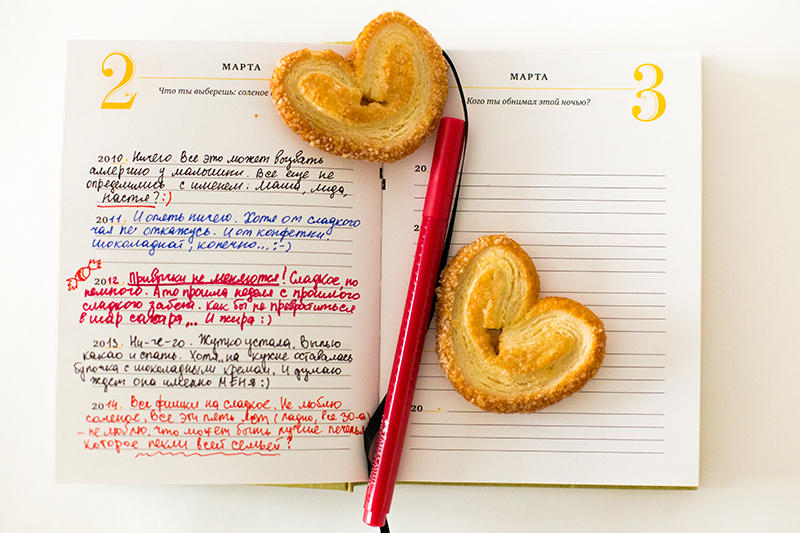 2
МАРТА
Что ты выберешь: соленое
2010. Ничего. Все это может вызвать
аллергию у малышки. Все еще не
определились с именем: Маша, Лида,
Настя? :)
2011. И опять ничего. Хотя от сладкого
чая не откажусь. И от конфетки.
Шоколадной, конечно... :-)
2012. Привычки не меняются! Сладкое, но
немного. А то прошла неделя с прошлого
сладкого забега. Как бы не превратиться
в шар сахара... И жира :)
2013. Ни-че-го. Жутко устала. Выпью
какао и спать. Хотя, на кухне оставалась
булочка с шоколадным кремом. И думаю
ждет она именно МЕНЯ :)
2014. Все фишки на сладкое. Не люблю
соленое. Все эти пять лет (ладно, все 30-а)
не люблю. Что может быть лучше печенья,
которое пекли всей семьей?
МАРТА
3
Кого ты обнимал этой ночью?
20
2
2
20